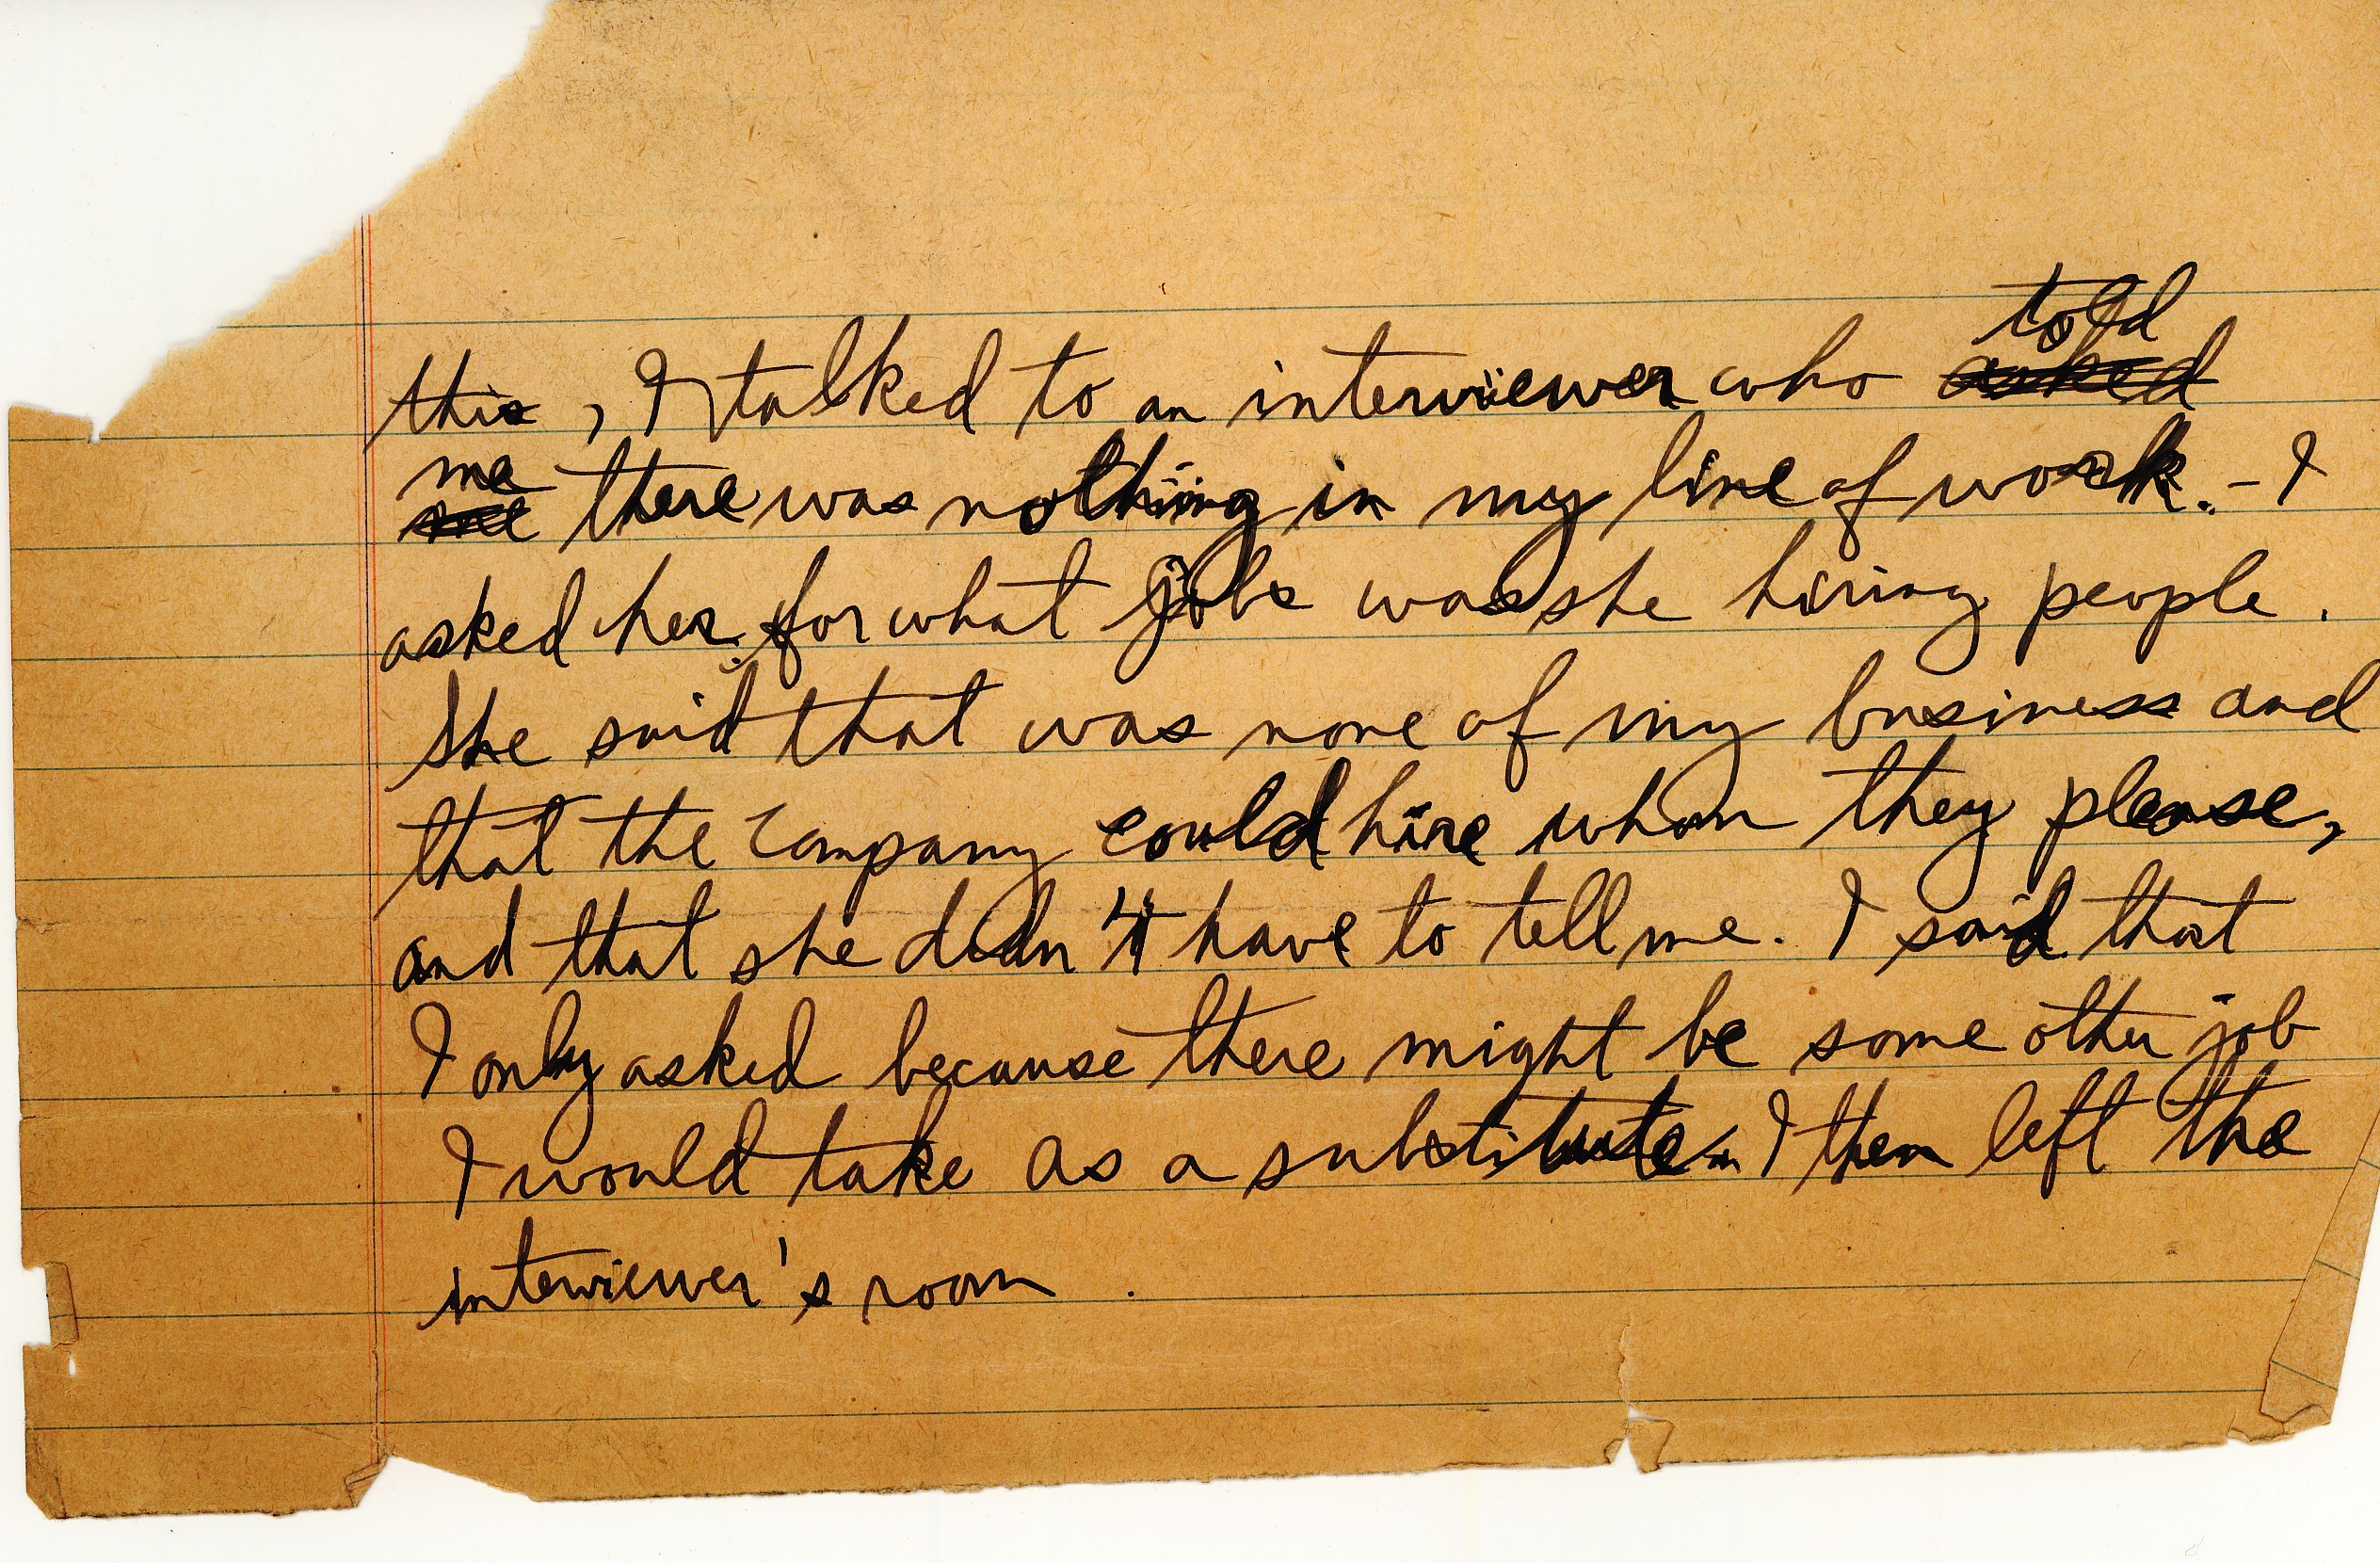 told
this, I talked to an interviewer who asked
me
me there was nothing in my line of work. - I
asked her for what jobs was she hiring people.
She said that was none of my business and
that the company could hire whom they please,
and that she didn't have to tell me. I said that
I only asked because there might be some other job
I would take as a substitute. I then left the
interviewer's room.